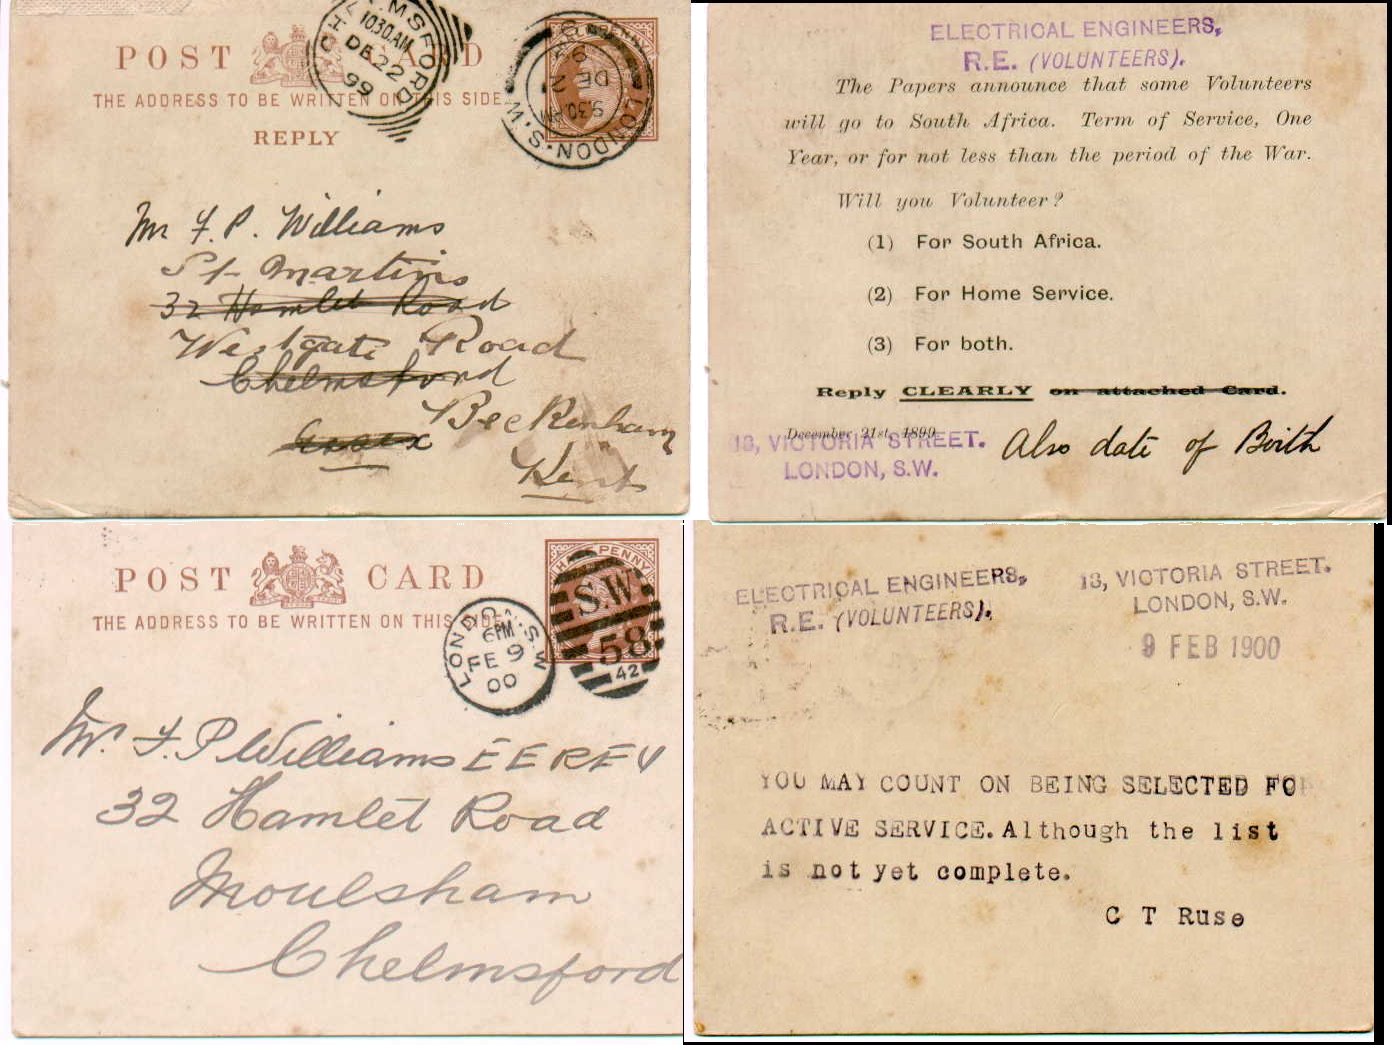 POST CARD
THE ADDRESS TO BE WRITTEN ON THIS SIDE.
REPLY
CHELMSFORD
10.30AM
DE 22
99
HALFPENNY
LONDON.S.W.
9.30AM
DE 21
99
Mr F. P. Williams
St Martins
32 Hamlet Road
Westgate Road
Chelmsford
Beckenham
Essex
Kent
ELECTRICAL ENGINEERS,
R.E. (VOLUNTEERS).
The Papers announce that some Volunteers
will go to South Africa. Term of Service, One
Year, or for not less than the period of the War.
Will you Volunteer?
(1) For South Africa.
(2) For Home Service.
(3) For both.
Reply CLEARLY on attached Card.
December 21st, 1899.
13, VICTORIA STREET.
LONDON, S.W.
Also date of Birth
POST CARD
THE ADDRESS TO BE WRITTEN ON THIS SIDE.
HALFPENNY
LONDON.S.W
6PM
FE 9
00
S.W
58
42
Mr. F. P Williams E E R E V
32 Hamlet Road
Moulsham
Chelmsford
ELECTRICAL ENGINEERS,
R.E. (VOLUNTEERS).
13, VICTORIA STREET.
LONDON, S.W.
9 FEB 1900
YOU MAY COUNT ON BEING SELECTED FOR
ACTIVE SERVICE. Although the list
is not yet complete.
C T Ruse